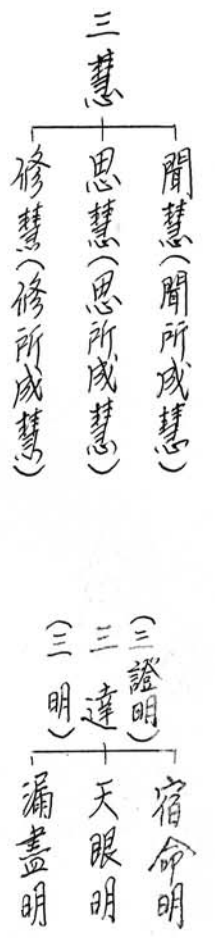 三慧
聞慧(聞所成慧)
思慧(思所成慧)
修慧(修所成慧)
(三證明)
三達
(三明)
宿命明
天眼明
漏盡明